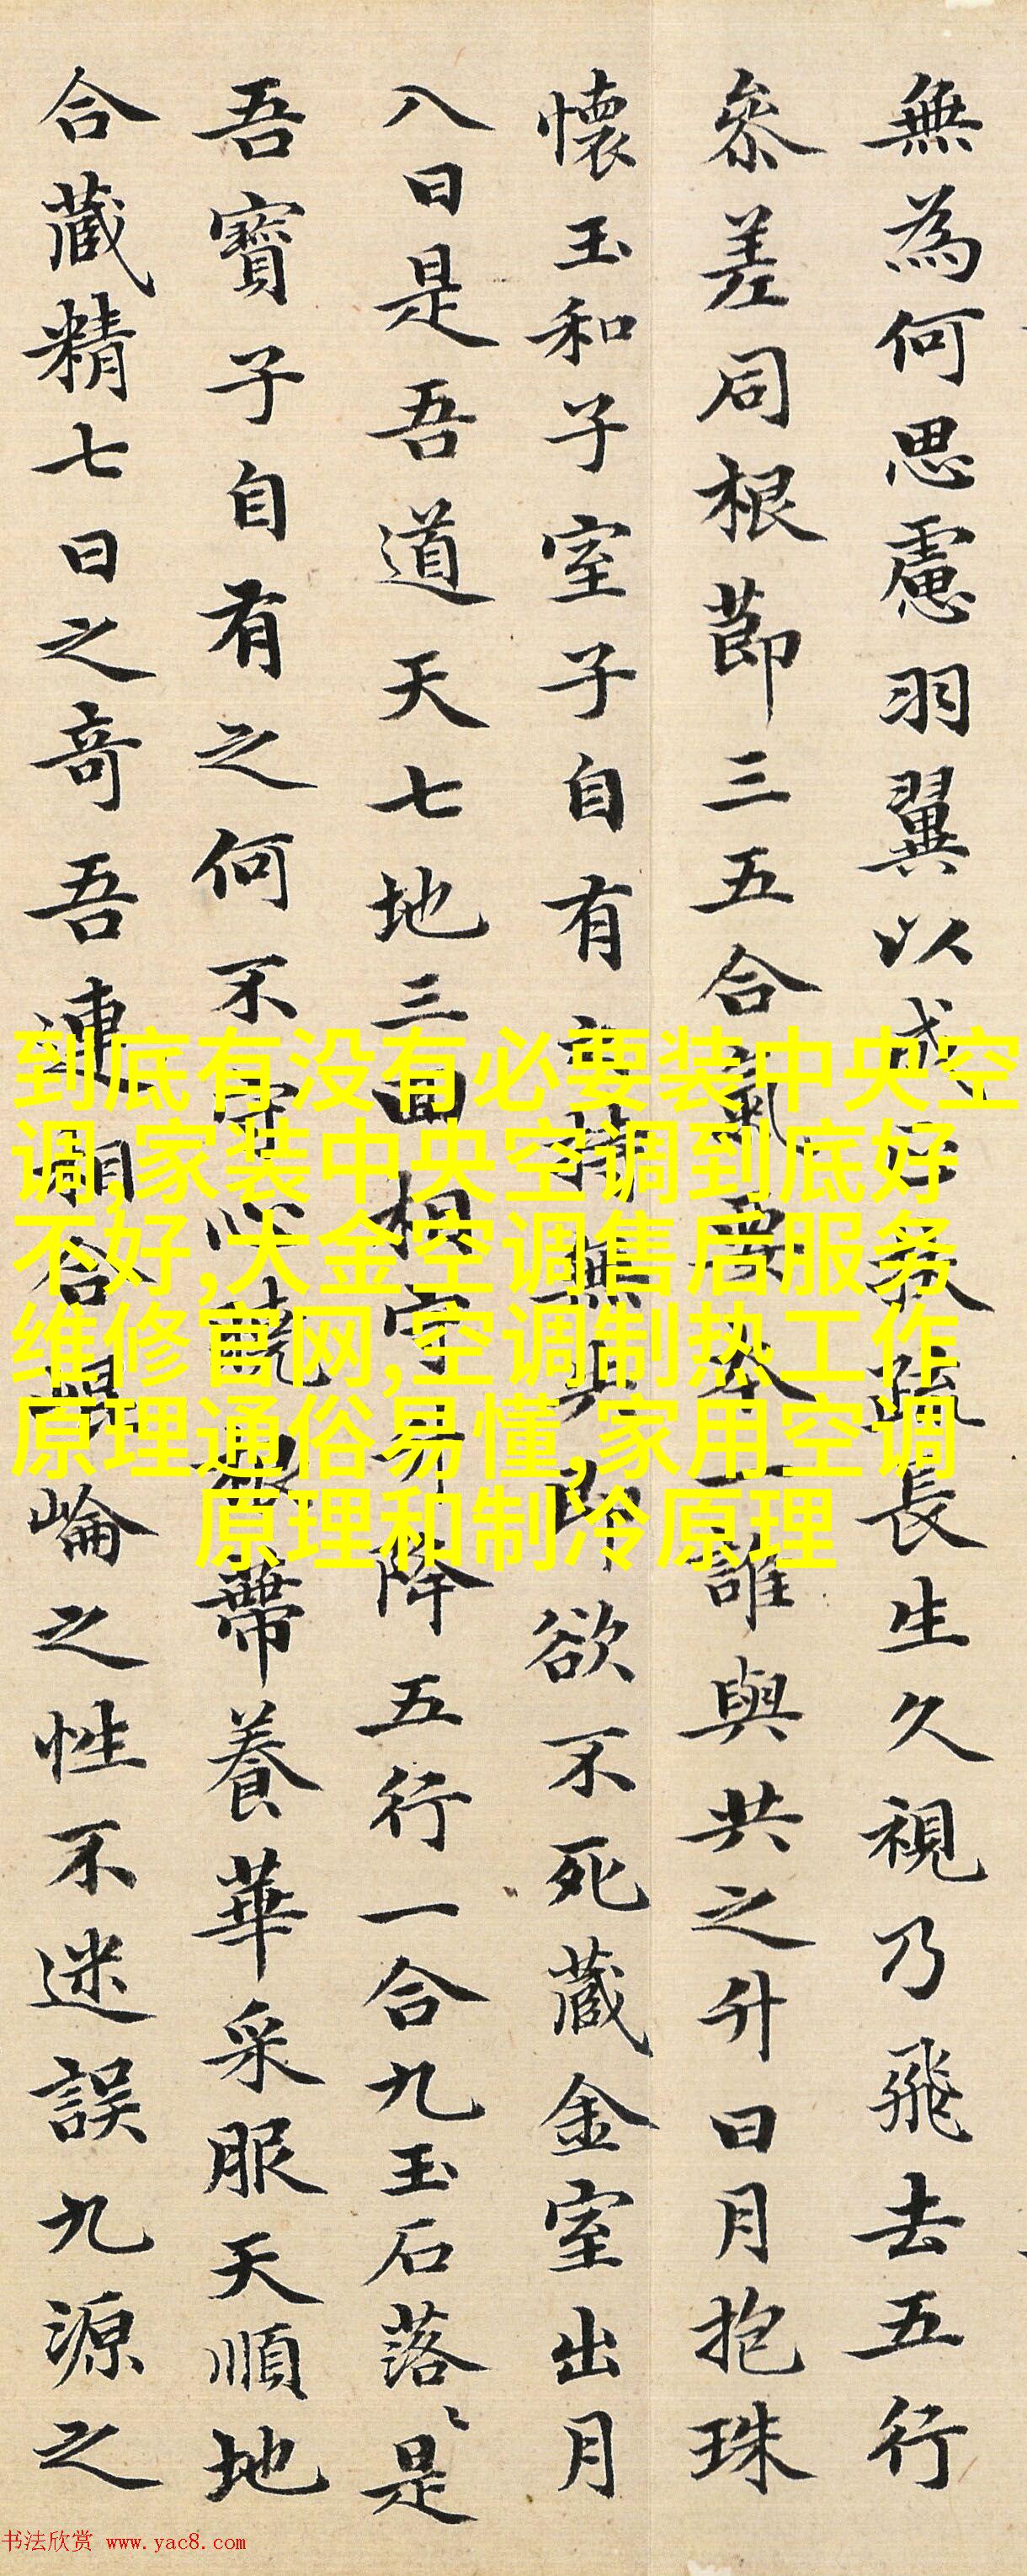 無為何思慮羽翼以成扶疏長生久視乃飛去五行
參差同根莭三五合氣要本一誰與共之升日月抱珠
懷玉和子室子自有持無失即欲不死藏金室出月
入日是吾道天七地三回相守昇降五行一合九玉石落〻是
吾寶子自有之何不守心曉根帶養華采服天順地
合藏精七日之奇吾連相合崑崙之性不迷誤九源之
到底有没有必要装中央空
调,家装中央空调到底好
不好,大金空调售后服务
维修官网,空调制热工作
原理通俗易懂,家用空调
原理和制冷原理
书法欣赏 www.yac8.com